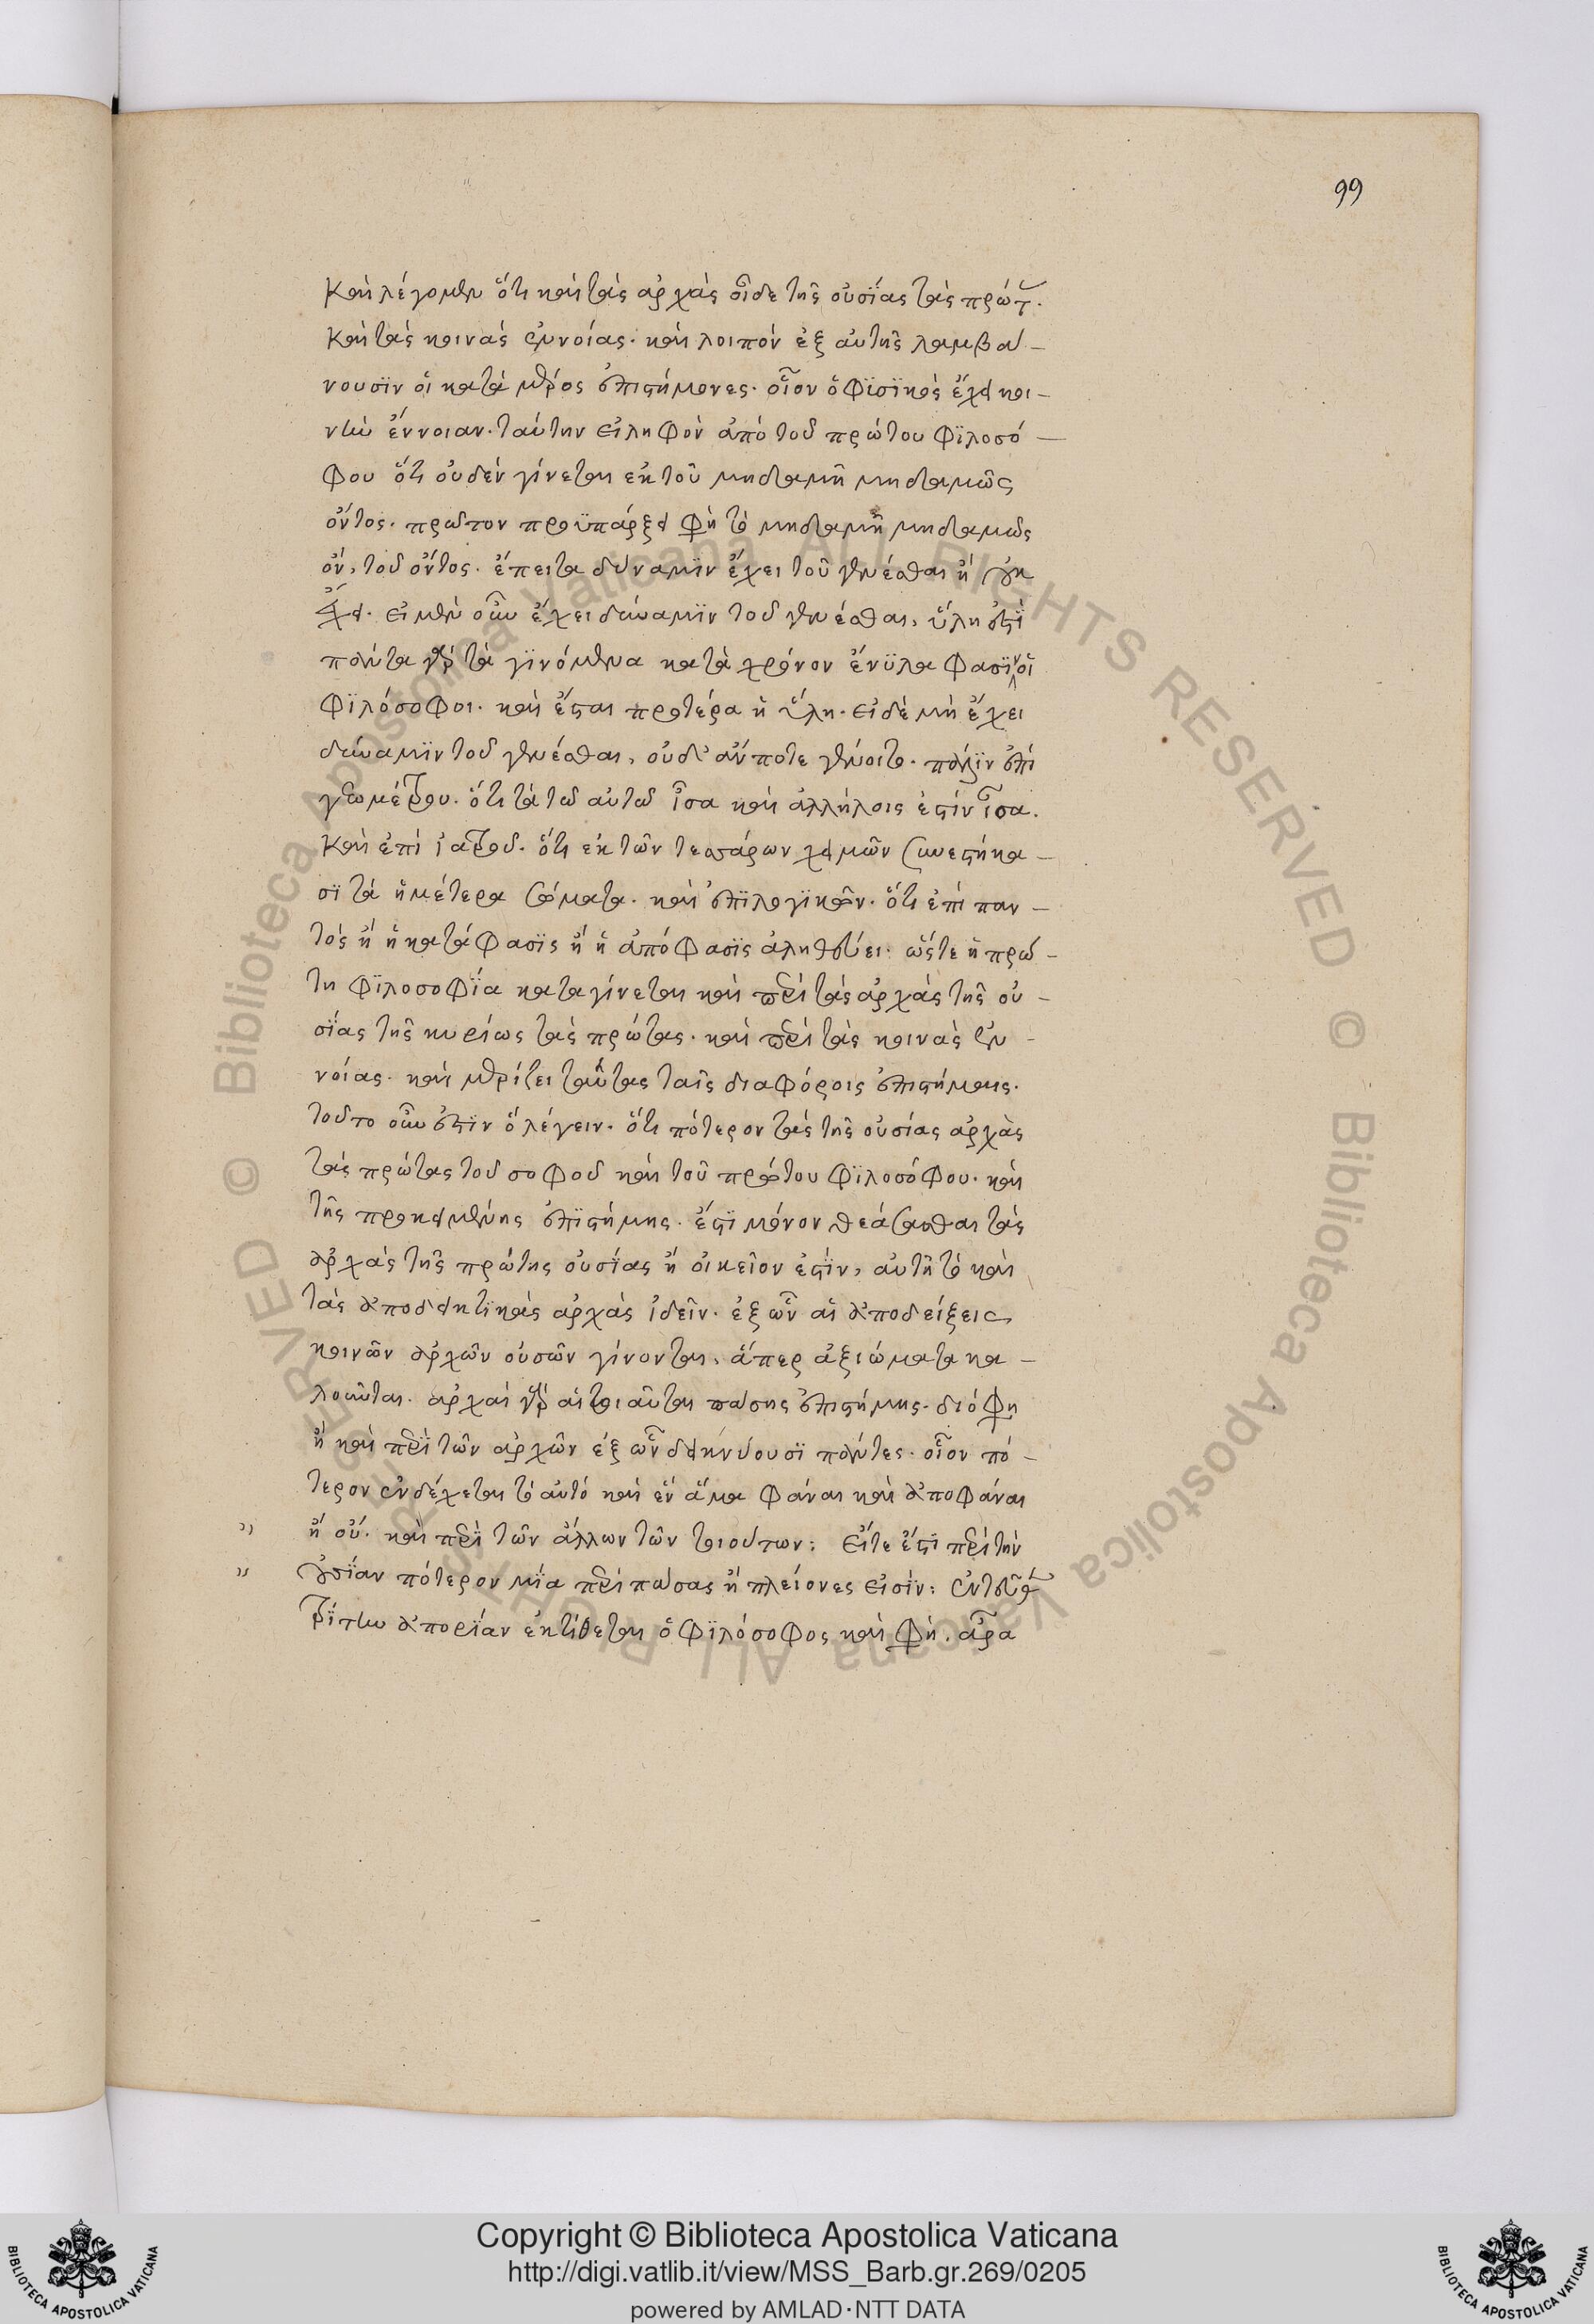 99
Καὶ λέγομεν ὅτι καὶ τὰς ἀρχὰς οἶδε τῆς οὐσίας τὰς πρώτ.
Καὶ τὰς κοινὰς ἐννοίας. καὶ λοιπὸν ἐξ αὐτῆς λαμβά-
νουσϊν οἱ κατὰ μέρος ἐπιστήμονες. οἷον ὁ Φϊσϊκὸς ἔχει κοι-
νὴν ἔννοιαν. ταύτην εἰληφὸν ἀπὸ τοῦ πρώτου Φϊλοσό-
φου ὅτι οὐδὲν γίνεται ἐκ τοῦ μηδαμῆ μηδαμῶς
ὄντος. πρῶτον προϋπάρξει φὴ τὸ μηδαμῆ μηδαμῶς
ὄν, τοῦ ὄντος. ἔπειτα δύναμϊν ἔχει τοῦ γενέσθαι ἢ οὐκ
ἔχει. εἰ μὲν οὖν ἔχει δύναμϊν τοῦ γενέσθαι, ὕλη ἐστϊ
πάντα γὰρ τὰ γϊνόμενα κατὰ χρόνον ἔνϋλα φασϊν οἱ
Φϊλόσοφοι. καὶ ἔσται προτέρα ἡ ὕλη. εἰ δὲ μὴ ἔχει
δύναμϊν τοῦ γενέσθαι, οὐδ' ἄν ποτε γένοιτο. πάλϊν ἐπὶ
γεωμέτρου. ὅτι τὰ τῶ αὐτῶ ἶσα καὶ ἀλλήλοις ἐστὶν ἶσα.
Καὶ ἐπὶ ἰατροῦ. ὅτι ἐκ τῶν τεσσάρων χειμῶν συνεστήκα-
σϊ τὰ ἡμέτερα σώματα. καὶ ἐπϊ λογϊκῶν. ὅτι ἐπὶ παν-
τὸς ἢ ἡ κατάφασϊς ἢ ἡ ἀπόφασϊς ἀληθεύει. ὥστε ἡ πρώ-
τη Φϊλοσοφΐα καταγίνεται καὶ περὶ τὰς ἀρχὰς τῆς οὐ-
σΐας τῆς κυρίως τὰς πρώτας. καὶ περὶ τὰς κοινὰς ἐν-
νοίας. καὶ μερίζει ταύτας ταῖς διαφόροις ἐπιστήμαις.
τοῦτο οὖν ἐστϊν ὃ λέγειν. ὅτι πότερον τὰς τῆς οὐσίας ἀρχὰς
τὰς πρώτας τοῦ σοφοῦ καὶ τοῦ πρώτου Φϊλοσόφου. καὶ
τῆς προκειμένης ἐπϊστήμης. ἔστϊ μόνον θεάσασθαι τὰς
ἀρχὰς τῆς πρώτης οὐσΐας ἢ οἰκεῖον ἐστϊν, αὐτῆ τὸ καὶ
τὰς ἀποδεικτϊκὰς ἀρχὰς ἰδεῖν. ἐξ ὧν αἱ ἀποδείξεις
κοινῶν ἀρχῶν οὐσῶν γίνονται, ἅπερ ἀξιώματα κα-
λοῦνται. ἀρχαὶ γὰρ αἱ τοιαῦται πάσης ἐπιστήμης. διό φη
ἢ καὶ περϊ τῶν ἀρχῶν ἐξ ὧν δεικνύουσϊ πάντες. οἷον πό-
τερον ἐνδέχεται τὸ αὐτὸ καὶ ἓν ἅμα φάναι καὶ ἀποφάναι
ἢ οὔ. καὶ περϊ τῶν ἄλλων τῶν τοιούτων: Εἴτε ἔστϊ περὶ τὴν
οὐσΐαν πότερον μΐα περὶ πάσας ἢ πλείονες εἰσίν: ἐνταῦθ
τρϊτην ἀπορΐαν ἐκτίθεται ὁ Φϊλόσοφος καὶ φὴ. ἆρα
Copyright © Biblioteca Apostolica Vaticana
http://digi.vatlib.it/view/MSS_Barb.gr.269/0205
powered by AMLAD·NTT DATA